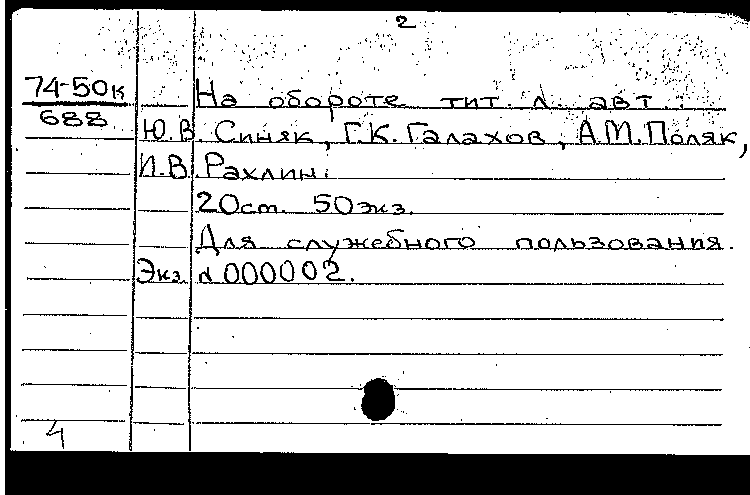 2
74-50к
688
На обороте тит. л. авт.:
Ю.В. Синяк, Г.К. Галахов, А.М. Поляк,
И.В. Рахлин.
20 ст. 50 экз.
Для служебного пользования.
Экз. N 000002.
4